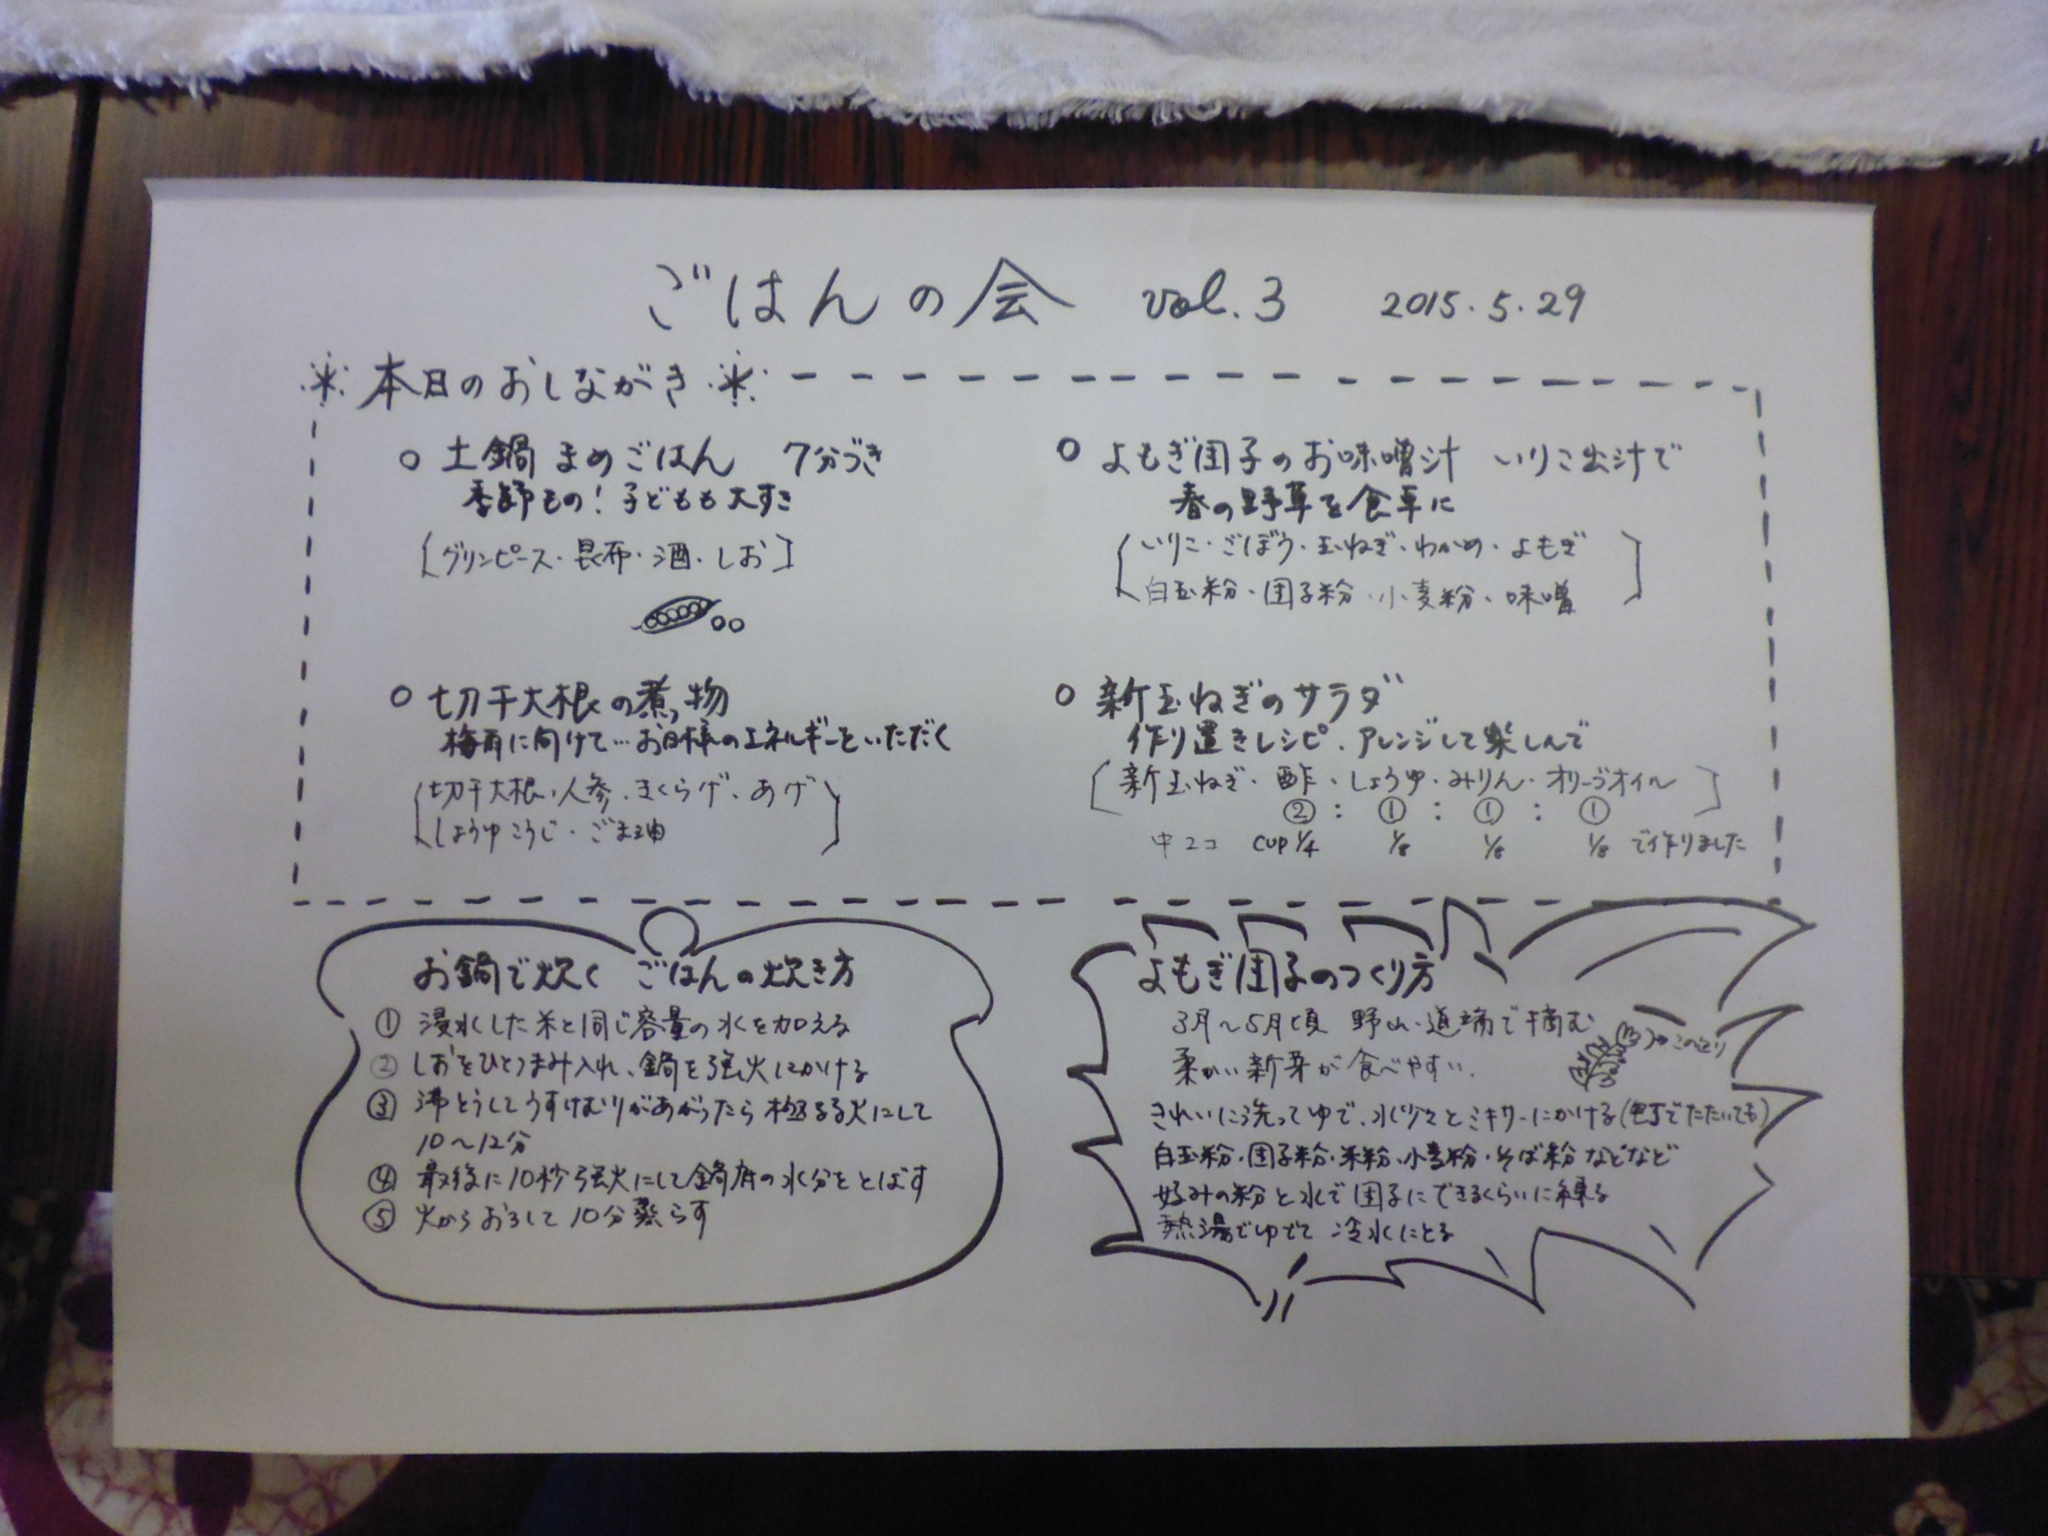 ごはんの会 vol.3 2015.5.29
本日のおしながき
○ 土鍋 まめごはん 7分づき
季節もの！子どもも大すき
[グリンピース・昆布・酒・しお]
○ よもぎ団子のお味噌汁 いりこ出汁で
春の野草を食卓に
[いりこ・ごぼう・玉ねぎ・わかめ・よもぎ
白玉粉・団子粉・小麦粉・味噌]
○ 切干大根の煮物
梅雨に向けて…お日様のエネルギーをいただく
[切干大根・人参・きくらげ・あげ
しょうゆこうじ・ごま油]
○ 新玉ねぎのサラダ
作り置きレシピ、アレンジして楽しんで
[新玉ねぎ・酢・しょうゆ・みりん・オリーブオイル]
② : ① : ① : ①
中2コ cup 1/4 1/8 1/8 1/8 で作りました
お鍋で炊く ごはんの炊き方
① 浸水した米と同じ容量の水を加える
② しおをひとつまみ入れ、鍋を強火にかける
③ 沸とうしてうすけむりがあがったら極弱火にして
10〜12分
④ 最後に10秒強火にして鍋底の水分をとばす
⑤ 火からおろして10分蒸らす
よもぎ団子のつくり方
3月〜5月頃 野山・道端で摘む
柔かい新芽が食べやすい。
きれいに洗ってゆで、水少々とミキサーにかける(包丁でたたいても)
白玉粉・団子粉・米粉・小麦粉・そば粉などなど
好みの粉と水で団子にできるくらいに練る
熱湯でゆでて 冷水にとる